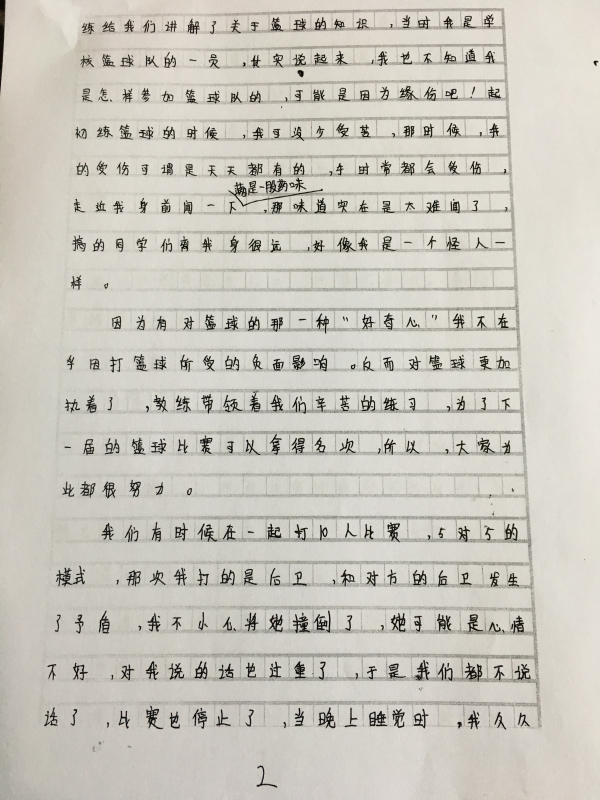 练给我们讲解了关于篮球的知识,当时我是学
校篮球队的一员,其实说起来,我也不知道我
是怎样参加篮球队的,可能是因为缘份吧!起
初练篮球的时候,我可没少受苦,那时候,我
的受伤可谓是天天都有的,手时常都会受伤,
满是一股药味
走近我身前闻一下,那味道实在是太难闻了,
搞的同学们离我身很远,好像我是一个怪人一
样。
因为有对篮球的那一种“好奇心”我不在
乎因打篮球所受的负面影响。反而对篮球更加
执着了,教练带领着我们辛苦的练习,为了下
一届的篮球比赛可以拿得名次,所以,大家为
此都很努力。
我们有时候在一起打10人比赛,5对5的
模式,那次我打的是后卫,和对方的后卫发生
了予盾,我不小心将她撞倒了,她可能是心情
不好,对我说的话也过重了,于是我们都不说
话了,比赛也停止了,当晚上睡觉时,我久久
2